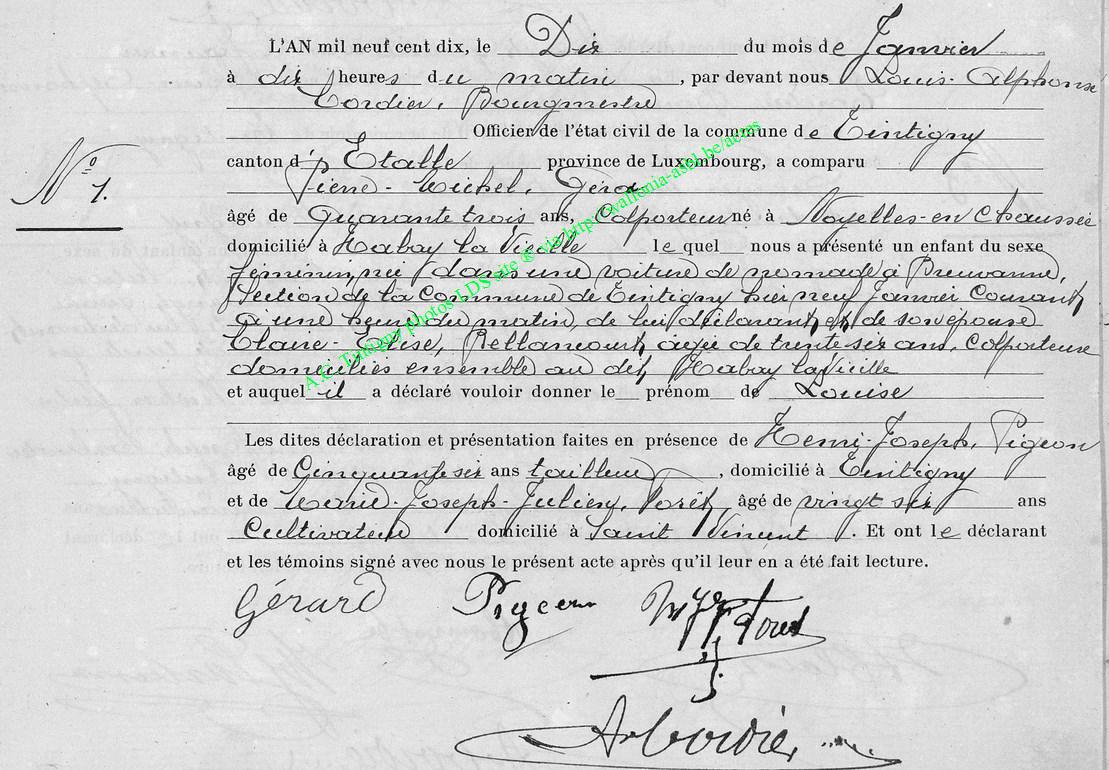 L'AN mil neuf cent dix, le Dix du mois de Janvier
à dix heures du matin, par devant nous Louis-Alphonse
Cordier, Bourgmestre
Officier de l'état civil de la commune de Tintigny
N° 1.
canton d' Etalle province de Luxembourg, a comparu
Pierre-Michel, Gérard
âgé de quarante trois ans, Colporteur né à Noyelles-en Chaussée
domicilié à Habay la Vieille lequel nous a présenté un enfant du sexe
feminin, née dans une voiture de nomade à Breuvanne,
Section de la Commune de Tintigny hier neuf Janvier Courant,
à une heure du matin, de lui déclarant, et de son épouse
Claire-Elise, Rellancourt, agée de trente six ans, Colporteuse
domiciliés ensemble au dit, Habay la Vieille
et auquel il a déclaré vouloir donner le prénom de Louise
Les dites déclaration et présentation faites en présence de Henri-Joseph, Pigeon
âgé de Cinquante six ans tailleur, domicilié à Tintigny
et de Marie-Joseph-Julien, Forêt, âgé de vingt six ans
Cultivateur domicilié à Saint Vincent. Et ont le déclarant
et les témoins signé avec nous le présent acte après qu'il leur en a été fait lecture.
Gérard Pigeon Foret
A Cordier
A.C. Tintigny photos LDS site ® via http://wallonia-asbl.be/actes